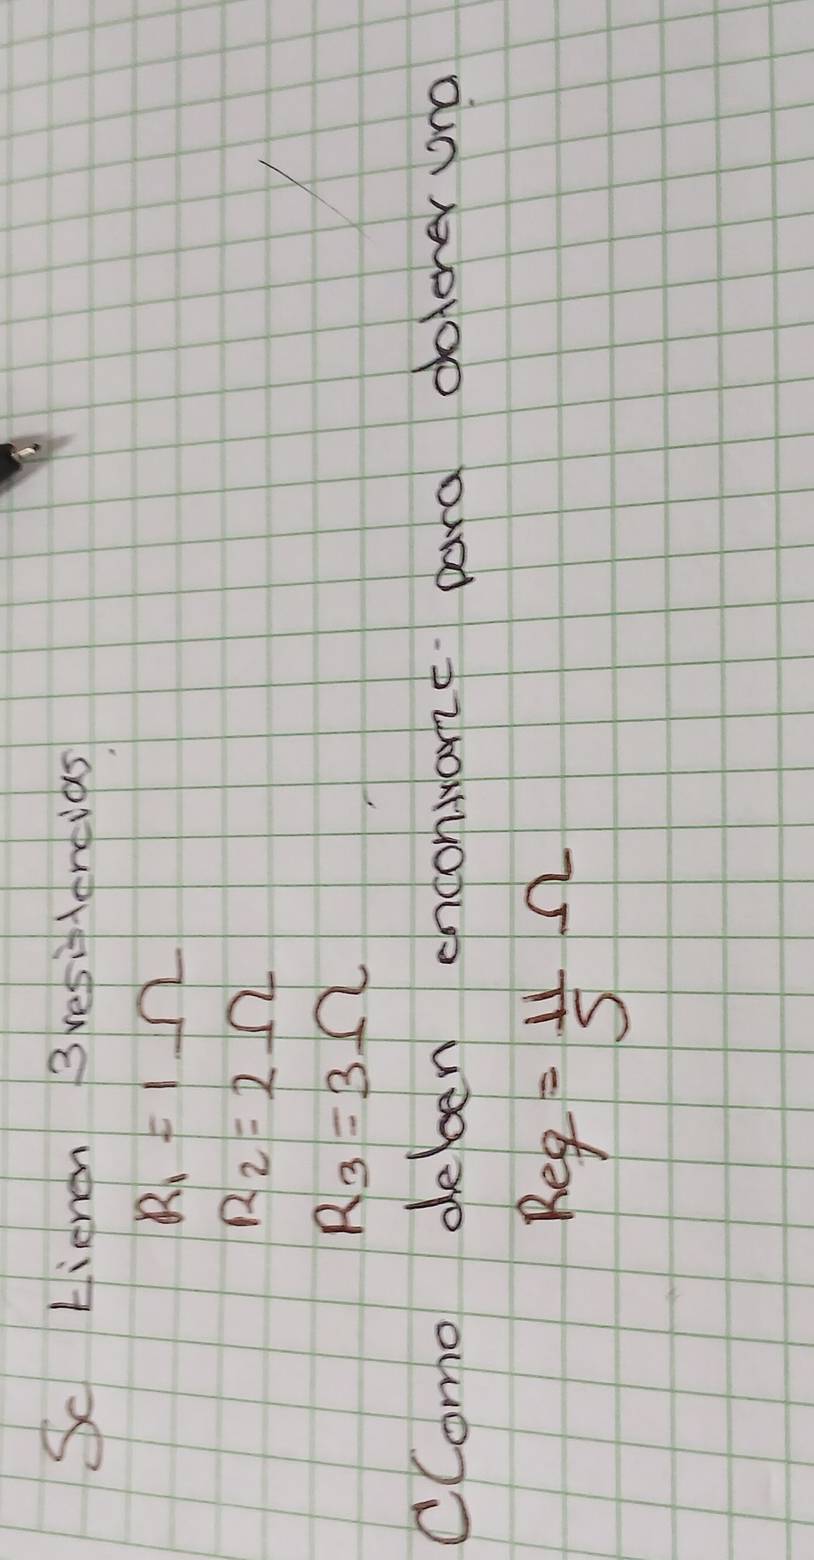 Se tienen 3 resistencias.
R₁ = 1 Ω
R₂ = 2 Ω
R₃ = 3 Ω
¿Como deben encontrarze para obtener una
Req = 11/5 Ω